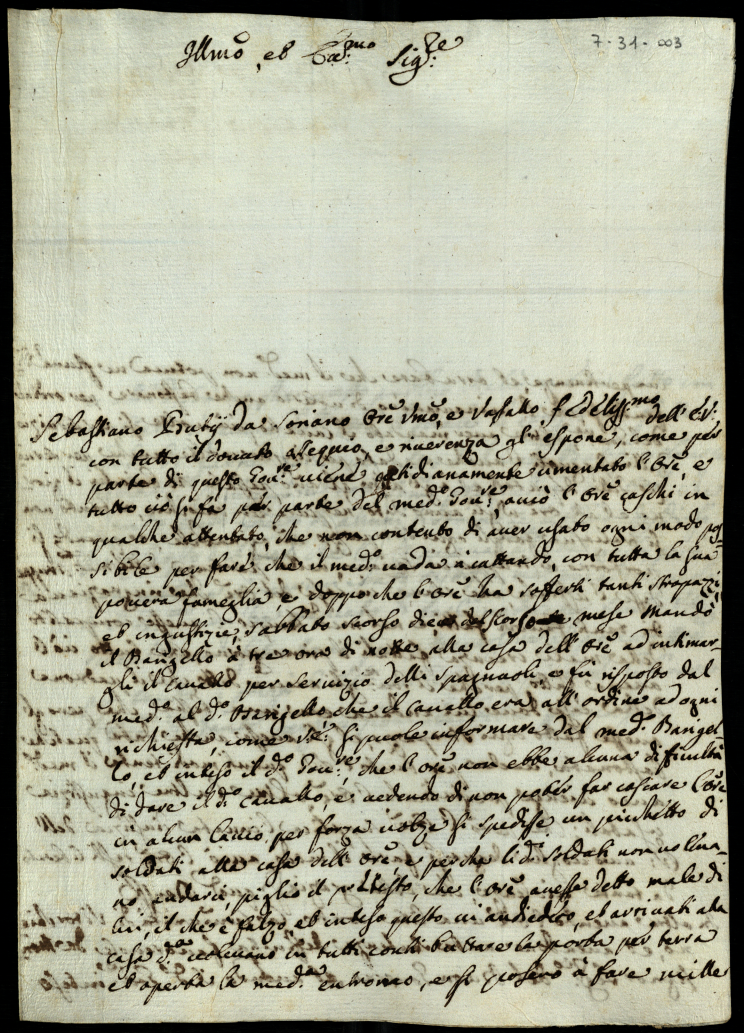 7-31-003
Illmo, et Ecc.mo Sig.re
Sebastiano Prubij da Soriano Ore Umo, e Vassallo fedeliss.mo dell' EV:
con tutto il douuto osequio, e riuerenza gl' espone, come per
parte di questo Gou.re uiene cotidianamente cimentato l'Ore, e
tutto ciò si fa per parte del med.o Gou.re, acciò l'Ore caschi in
qualche attentato, che non contento di auer usato ogni modo pos-
sibile per fare che il med.o uada accattando, con tutta la sua
pouera fameglia, e doppo che l'Ore ha sofferti tanti strapazzi,
et ingustizie, Sabbato scorso dieci del scorso mese mandò
il Bargello à tre ora di notte alla casa dell' Ore ad intimar-
gli il Cauallo per Seruizio delli Spagnuoli, e fù risposto dal
med.o al d.o Bargello che il Cauallo era all' ordine ad ogni
richiesta, come si puole informare dal med.o Bargel-
lo, et inteso il d.o Gou.re, che l'Ore non ebbe alcuna difficultà
di dare il d.o Cauallo, e uedendo di non poter far cascare l'Ore
in alcun laccio per forza uolze si spedisse un picchetto di
soldati alla casa dell' Ore e perche li d.i Soldati non uoleua-
no andarci, pigliò il pretesto, che l'Ore auesse detto male di
lui, il che è falzo, et inteso questo ui andiedero, et arriuati alla
casa d.a uoleuano in tutti conti buttare la porta per terra
et aperta la med.a entrorno, e si posero à fare mille